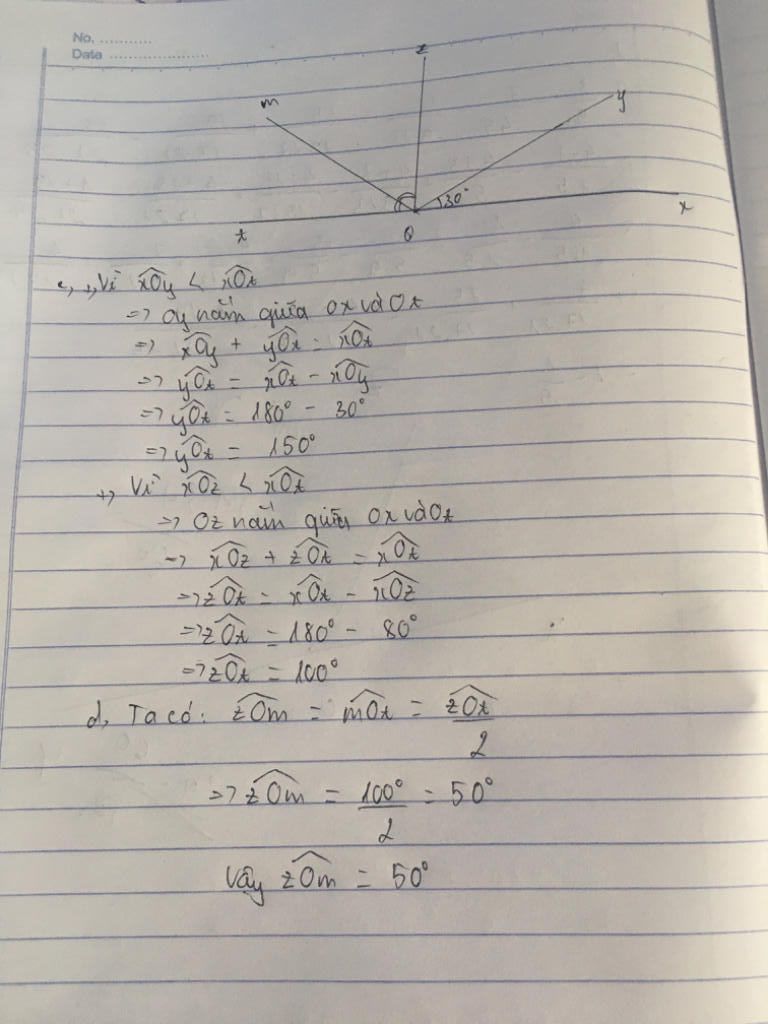 No. ............
Date .....................
z
m
y
30°
t
O
x
c, +, Vì xOy < xOt
=> Oy nằm giữa Ox và Ot
=> xOy + yOt = xOt
=> yOt = xOt - xOy
=> yOt = 180° - 30°
=> yOt = 150°
+, Vì xOz < xOt
=> Oz nằm giữa Ox và Ot
=> xOz + zOt = xOt
=> zOt = xOt - xOz
=> zOt = 180° - 80°
=> zOt = 100°
d, Ta có: zOm = mOt = zOt
2
=> zOm = 100° = 50°
2
Vậy zOm = 50°